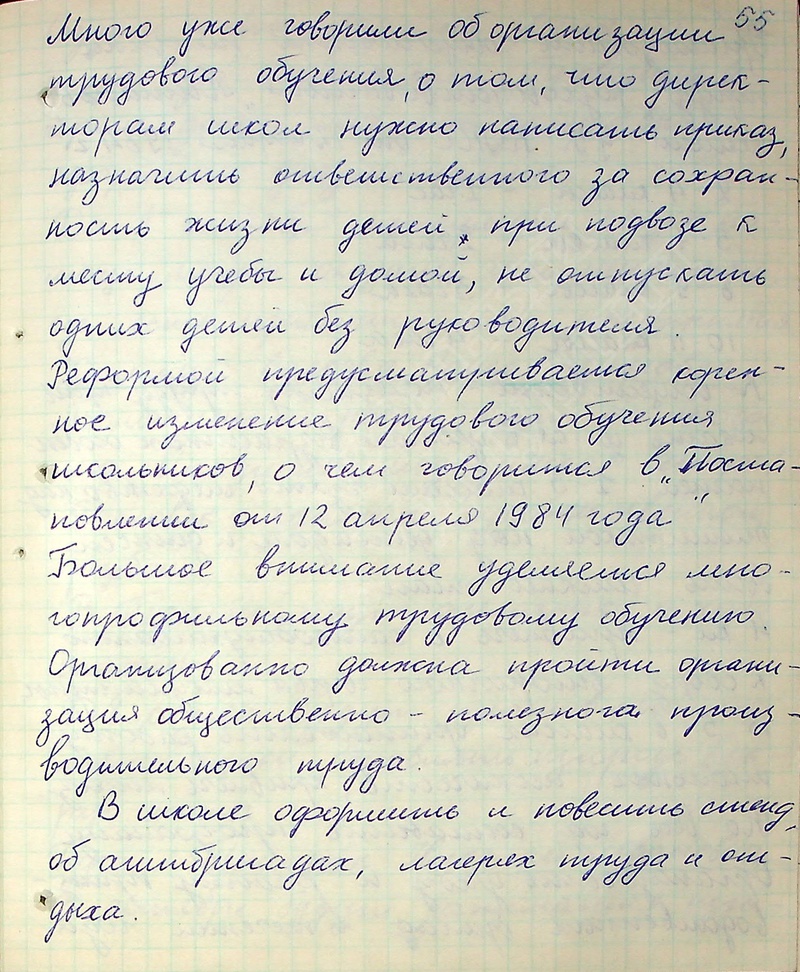 55
Много уже говорили об организации
трудового обучения, о том, что дирек-
торам школ нужно написать приказ,
назначить ответственного за сохран-
ность жизни детей, при подвозе к
месту учебы и домой, не отпускать
одних детей без руководителя.
Реформой предусматривается корен-
ное изменение трудового обучения
школьников, о чем говорится в „Поста-
новлении от 12 апреля 1984 года"
Большое внимание уделяется мно-
гопрофильному трудовому обучению.
Организованно должна пройти органи-
зация общественно - полезного произ-
водительного труда.
В школе оформить и повесить стенд,
об агитбригадах, лагерях труда и от-
дыха.